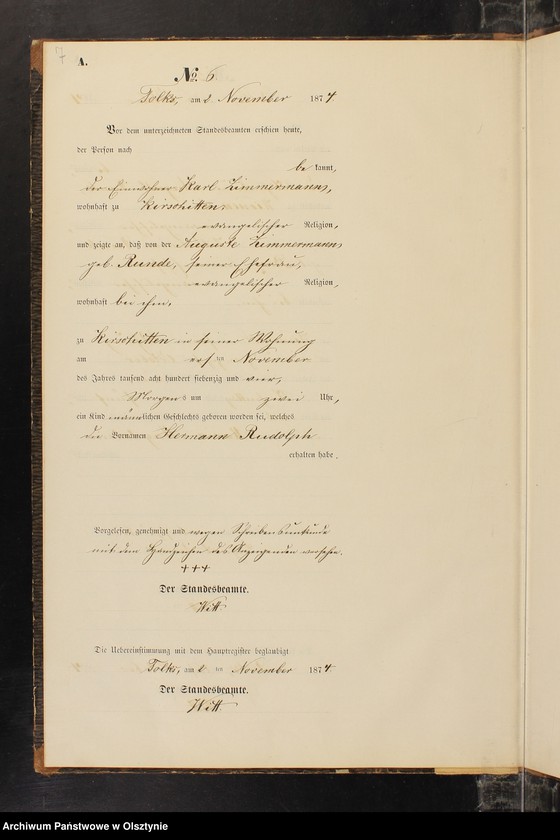 7
A.
No. 6.
Tolks, am 2 November 1874
Vor dem unterzeichneten Standesbeamten erschien heute,
der Person nach
bekannt,
der Einwohner Karl Zimmermann,
wohnhaft zu Kirschitten,
evangelischer Religion,
und zeigte an, daß von der Auguste Zimmermann,
geb. Runde, seiner Ehefrau,
evangelischer Religion,
wohnhaft bei ihm,
zu Kirschitten in seiner Wohnung
am ersten November
des Jahres tausend acht hundert siebenzig und vier,
Morgens um zwei Uhr,
ein Kind männlichen Geschlechts geboren worden sei, welches
die Vornamen Hermann Rudolph
erhalten habe.
Vorgelesen, genehmigt und wegen Schreibensunkunde
mit dem Handzeichen des Anzeigenden versehen.
+++
Der Standesbeamte.
Witt.
Die Uebereinstimmung mit dem Hauptregister beglaubigt
Tolks, am 2 ten November 1874.
Der Standesbeamte.
Witt.
Archiwum Państwowe w Olsztynie